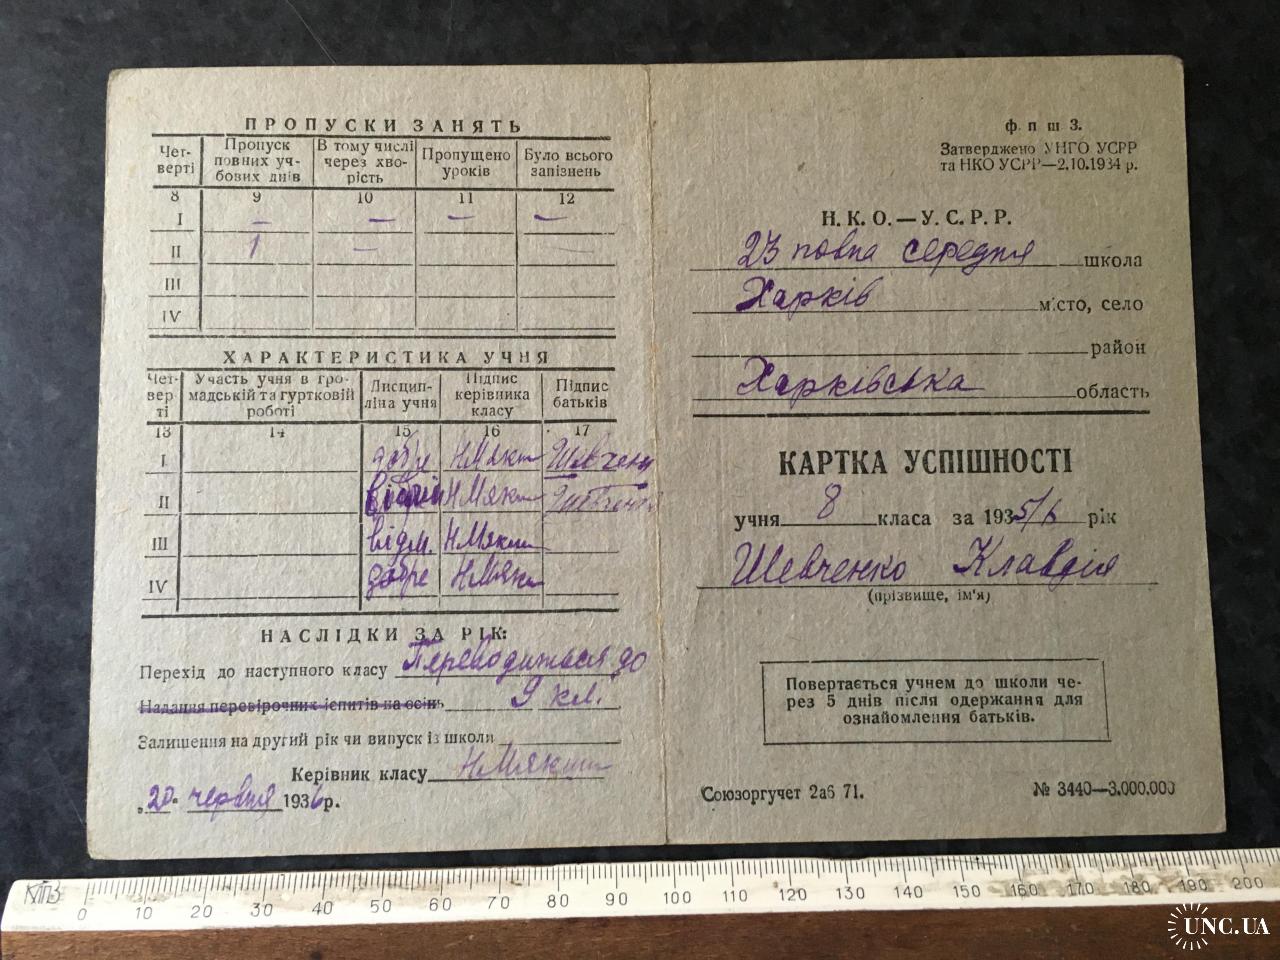 ПРОПУСКИ ЗАНЯТЬ
Чет-
верті
Пропуск
повних уч-
бових днів
В тому числі
через хво-
рість
Пропущено
уроків
Було всього
запізнень
8 9 10 11 12
I — — — —
II 1 —
III
IV
ХАРАКТЕРИСТИКА УЧНЯ
Чет-
вер-
ті
Участь учня в гро-
мадській та гуртковій
роботі
Дисцип-
ліна учня
Підпис
керівника
класу
Підпис
батьків
13 14 15 16 17
I добре Шевченк
II Шевченк
III відм.
IV добре
НАСЛІДКИ ЗА РІК:
Перехід до наступного класу Переводиться до
Надання перевірочних іспитів на осінь 9 кл.
Залишення на другий рік чи випуск із школи
Керівник класу
„20" червня 1936 р.
ф. п ш 3.
Затверджено УНГО УСРР
та НКО УСРР—2.10.1934 р.
Н. К. О. — У. С. Р. Р.
23 повна середня школа
Харків місто, село
район
Харківська область
КАРТКА УСПІШНОСТІ
учня 8 класа за 1935/6 рік
Шевченко Клавдія
(прізвище, ім'я)
Повертається учнем до школи че-
рез 5 днів після одержання для
ознайомлення батьків.
Союзоргучет 2аб 71.
№ 3440—3.000.000
0 10 20 30 40 50 60 70 80 90 100 110 120 130 140 150 160 170 180 190 200
UNC.UA